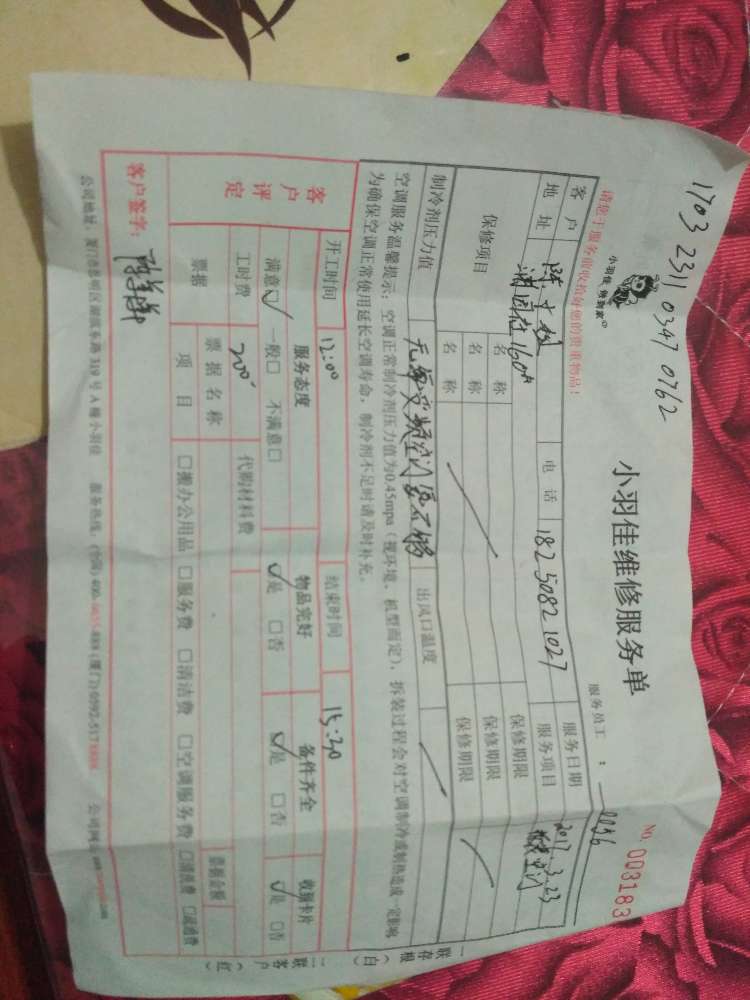 1703 2311 0347 0762
小羽佳维修服务单
NO. 003183
小羽佳 俫到家
服务员工：0056
请您于服务前收拾好您的贵重物品！
客户
电话 18250821027
服务日期 2017.3.23
地址
160#
服务项目
保修项目
名称
保修期限
名称
保修期限
名称
保修期限
制冷剂压力值
出风口温度
空调服务温馨提示：空调正常制冷剂压力值为0.45mpa（视环境、机型而定），拆装过程会对空调制冷或制热造成一定影响
为确保空调正常使用延长空调寿命，制冷剂不足时请及时补充。
开工时间 12:00 结束时间 15:20
客户评定
服务态度 物品完好 备件齐全 收据卡片
满意☑ 一般□ 不满意□ ☑是 □否 ☑是 □否 ☑是 □否
工时费 200 代购材料费
票据
票据名称
票据金额
项目 □搬办公用品 □服务费 □清洁费 □空调服务费 □清洗费 □疏通费
客户签字：
公司地址：厦门市思明区湖滨东路319号A幢小羽佳 服务热线：(全国)400-
公司网
一联存根（白）
二联客户（红）